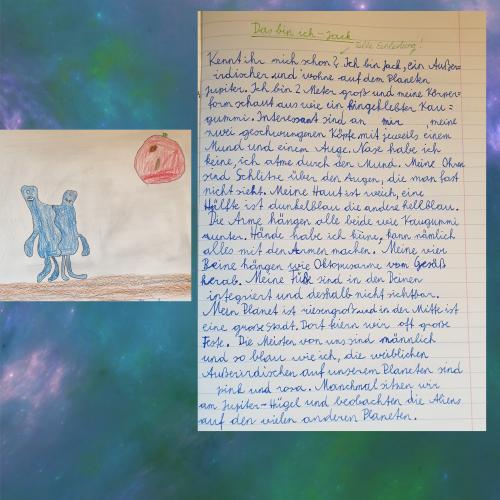 Das bin ich - Jack
tolle Einleitung!
Kennt ihr mich schon? Ich bin Jack, ein Außer=
irdischer und wohne auf dem Planeten
Jupiter. Ich bin 2 Meter groß und meine Körper=
form schaut aus wie ein hingeklebter Kau=
gummi. Interessant sind an mir, meine
zwei geschwungenen Köpfe mit jeweils einem
Mund und einem Auge. Nase habe ich
keine, ich atme durch den Mund. Meine Ohren
sind Schlitze über den Augen, die man fast
nicht sieht. Meine Haut ist weich, eine
Hälfte ist dunkelblau die andere hellblau.
Die Arme hängen alle beide wie Kaugummi
runter. Hände habe ich keine, kann nämlich
alles mit den Armen machen. Meine vier
Beine hängen wie Oktopusarme vom Gesäß
herab. Meine Füße sind in den Beinen
integriert und deshalb nicht sichtbar.
Mein Planet ist riesengroß und in der Mitte ist
eine große Stadt. Dort feiern wir oft große
Feste. Die Meisten von uns sind männlich
und so blau wie ich, die weiblichen
Außerirdischen auf unserem Planeten sind
pink und rosa. Manchmal sitzen wir
am Jupiter-Hügel und beobachten die Aliens
auf den vielen anderen Planeten.